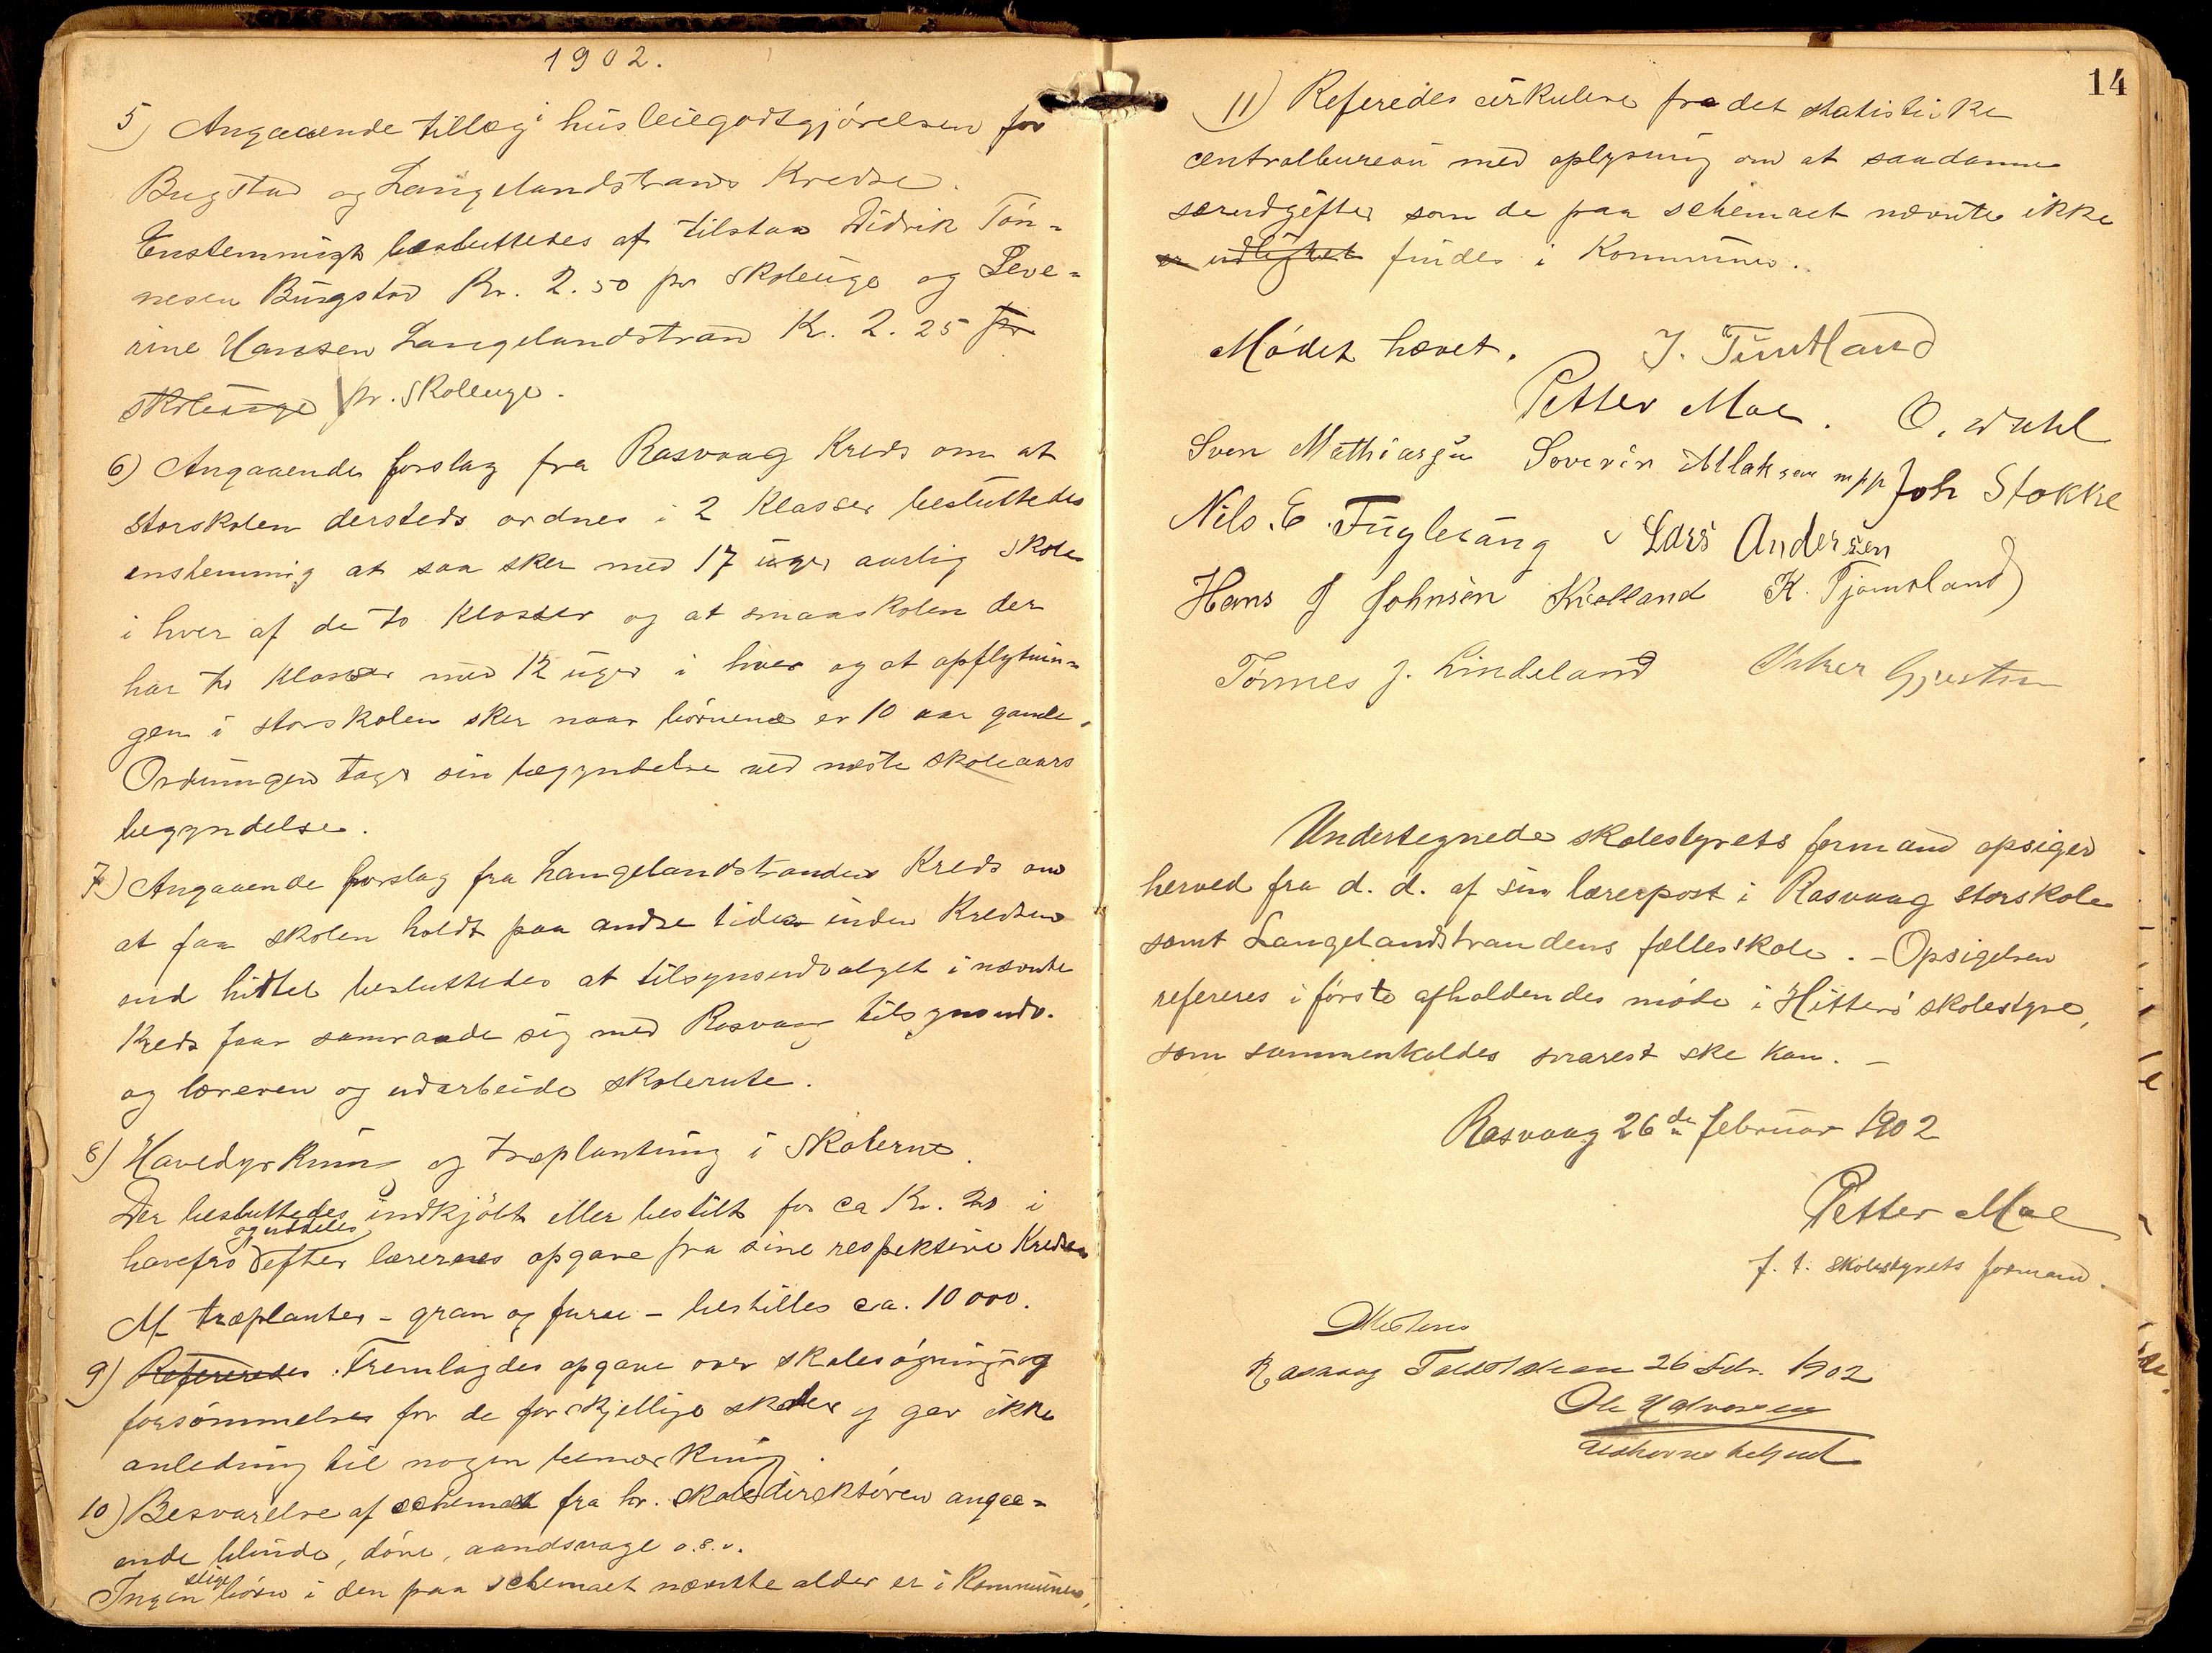 1902.
5) Angaaende tillæg i husleiegodtgjørelsen for
Bugstad og Langelandstrands Kredse.
Enstemmigt besluttedes at tilstaa Didrik Tøn-
nesen Bugstad Kr. 2.50 pr skoleuge og Seve-
rine Hansen Langelandstrand Kr. 2.25 pr
skoleuge pr. skoleuge.
6) Angaaende forslag fra Rasvaag Kreds om at
storskolen dersteds ordnes i 2 klasser besluttedes
enstemmig at saa sker med 17 uger aarlig skole
i hver af de to klasser og at smaaskolen der
har to klasser med 12 uger i hver og at opflytnin-
gen i storskolen sker naar børnene er 10 aar gamle.
Ordningen tager sin begyndelse ved næste skoleaars
begyndelse.
7) Angaaende forslag fra Langelandstrandens Kreds om
at faa skolen holdt paa andre tider inden Kredsen
end hidtil besluttedes at tilsynsudvalget i nævnte
Kreds faar samraade sig med Rasvaag tilsynsudv.
og læreren og udarbeide skolerute.
8) Havedyrkning og træplantning i skolerne.
Der besluttedes indkjøbt eller bestilt for ca Kr. 20 i
og uddeles
havefrø efter lærernes opgave fra sine respektive Kredse
Af træplanter - gran og furu - bestilles ca. 10000.
9) Refereredes. Fremlagdes opgave over skolesøgning og
forsømmelser for de forskjellige skoler og gav ikke
anledning til nogen bemærkning.
10) Besvarelse af schemaet fra hr. skoledirektøren angaa-
ende blinde, døve, aandsvage o.s.v.
slige
Ingen børn i den paa schemaet nævnte alder er i Kommunen.
14
11) Referedes cirkulere fra det statistiske
centralbureau med oplysning om at saadanne
særudgifter som de paa schemaet nævnte ikke
er udlignet findes i Kommunen.
Mødet hævet. J. Tuntland
Petter Moe. O. Wahl
Sven Mathiasen Severin Isaksen mpp Joh Stokke
Nils. E. Fuglevang Lars Andersen
Hans J Johnsen Kielland K. Tjomsland
Tønnes J. Lindeland
Undertegnede skolestyrets formand opsiger
herved fra d. d. af sin lærerpost i Rasvaag storskole
samt Langelandstrandens fællesskole. - Opsigelsen
refereres i første afholdendes møde i Hitterø skolestyre,
som sammenkaldes snarest ske kan. -
Rasvaag 26de februar 1902
Petter Moe
f. t. skolestyrets formand.
Attesteres
Rasvaag 26 Febr. 1902
Ole Halvorsen